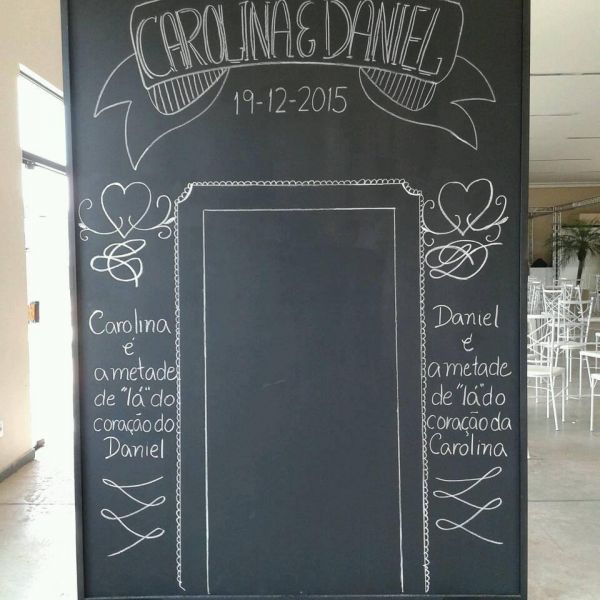 CAROLINA & DANIEL
19-12-2015
C
D
Carolina
é
a metade
de "lá" do
coração do
Daniel
Daniel
é
a metade
de "lá" do
coração da
Carolina